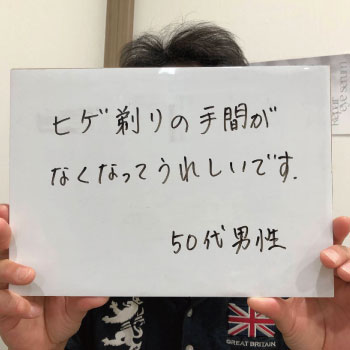 ヒゲ剃りの手間が
なくなってうれしいです.
50代男性
GREAT BRITAIN
Repair
eye serum